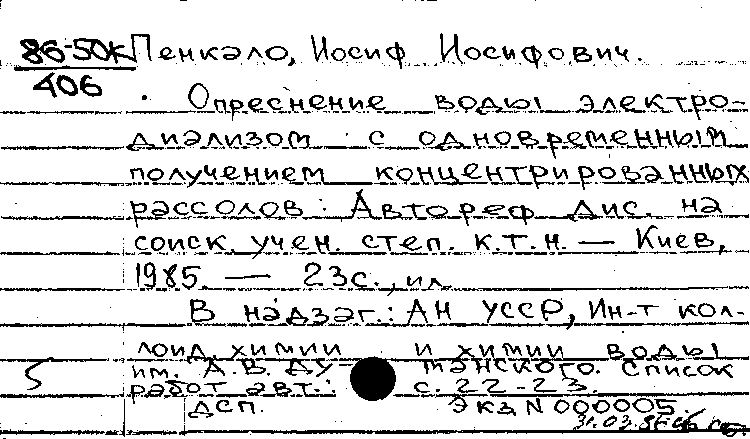 86-50к Пенкало, Иосиф Иосифович.
406
Опреснение воды электро-
диализом с одновременным
получением концентрированных
рассолов: Автореф дис. на
соиск. учен. степ. к.т.н. — Киев,
1985. — 23с., ил
В надзаг.: АН УССР, Ин-т кол-
лоид. химии и химии воды
5 им. А.В. Ду- манского. Список
работ авт.: с. 22-23.
ДСП. Экз N 000005.
31.03.86